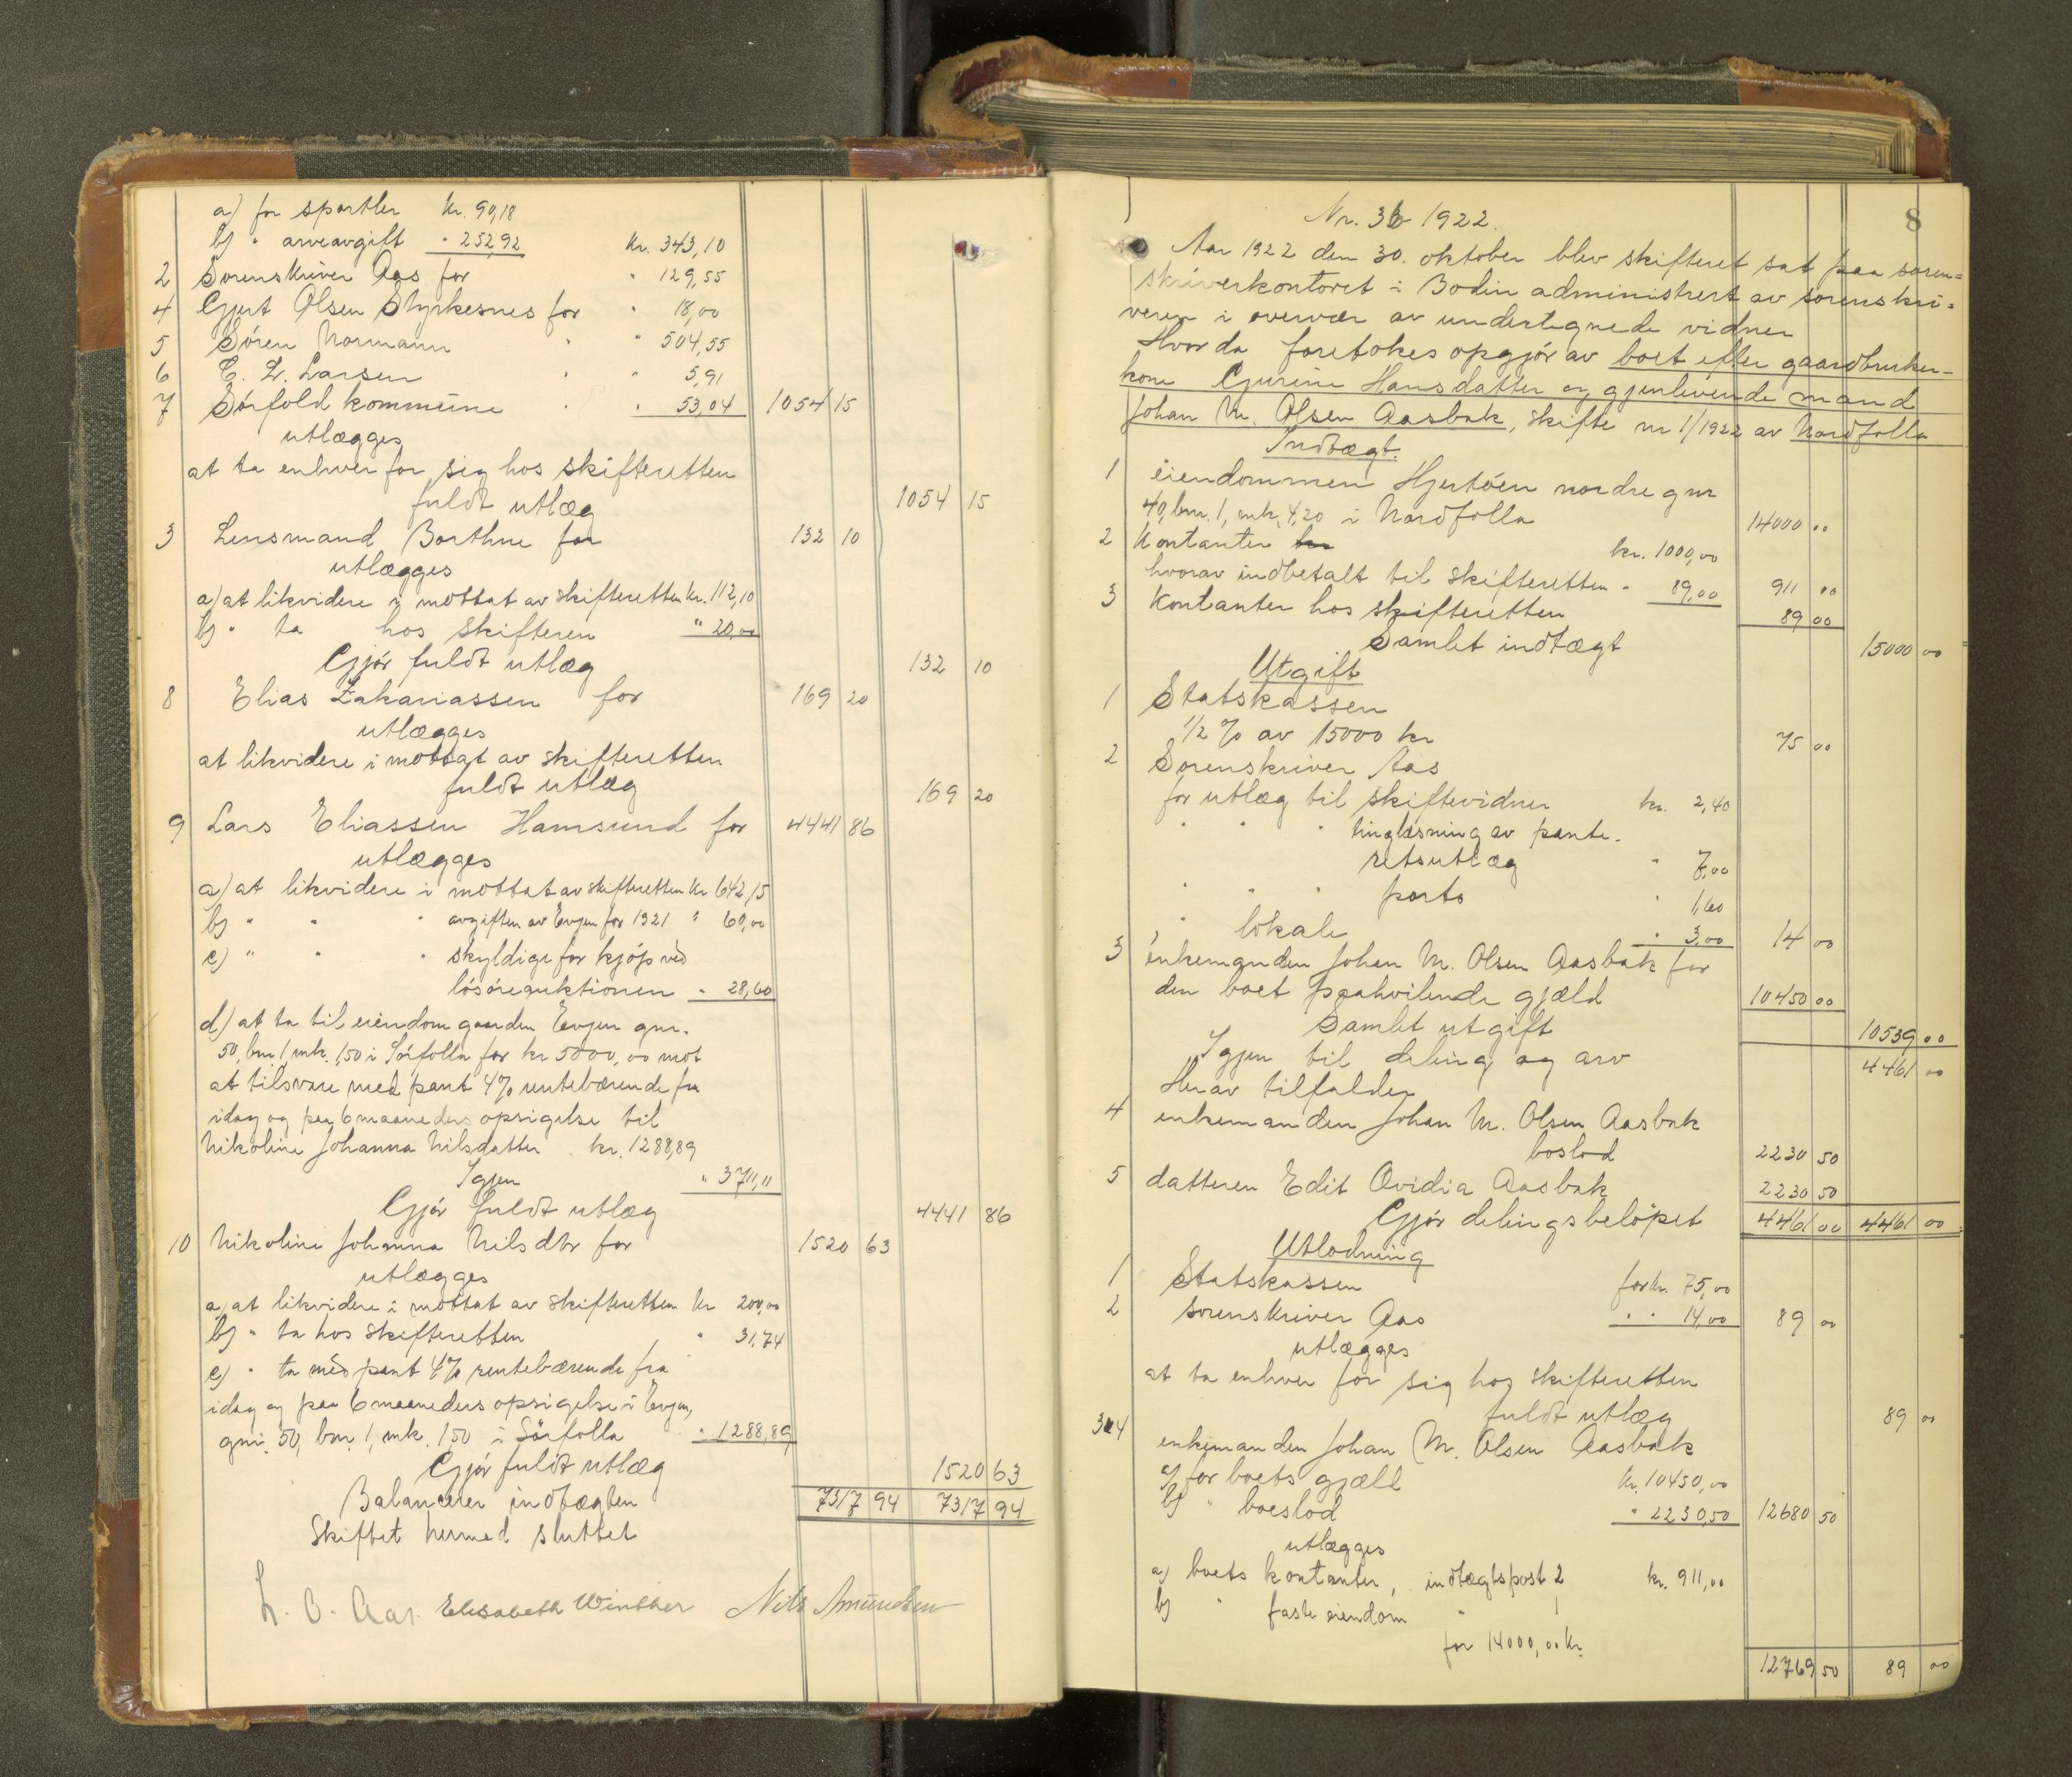 a) for sportler Kr. 90,18
b) " arveavgift " 252,92 Kr. 343,10
2 Sorenskriver Aas for " 129,55
4 Gjert Olsen Styrkesnes for " 18,00
5 Sören Normann " " 504,55
6 C. Z. Larsen " " 5,91
7 Sörfold kommune " " 53,04 1054 15
utlægges
at ta enhver for sig hos skifteretten
fuldt utlæg 1054 15
3 Lensmand Borthne for 132 10
utlægges
a) at likvidere i mottat av skifteretten kr. 112,10
b) " ta hos skifteren " 20,00
Gjör fuldt utlæg 132 10
8 Elias Zakariassen for 169 20
utlægges
at likvidere i mottat av skifteretten
fuldt utlæg 169 20
9 Lars Eliassen Hamsund for 4441 86
utlægges
a) at likvidere i mottat av skifteretten Kr 642,15
b) " " " avgiften av Evjen for 1921 " 60,00
c) " " " skyldige for kjöp ved
lösöreauktionen " 28,60
d) at ta til eiendom gaarden Evjen gnr.
50, bnr 1 mk. 1,50 i Sörfolla for kr 5000,00 mot
at tilsvare med pant 4% rentebærende fra
idag og paa 6 maaneders opsigelse til
Nikoline Johanna Nilsdatter kr. 1288,89
Igjen " 3711,11
Gjör fuldt utlæg 4441 86
10 Nikoline Johanna Nilsdtr for 1520 63
utlægges
a) at likvidere i mottat av skifteretten Kr 200,00
b) " ta hos skifteretten " 31,74
c) " ta med pant 4% rentebærende fra
idag og paa 6 maaneders opsigelse i Evjen,
gnr. 50, bnr. 1, mk. 1,50 i Sörfolla " 1288,89
Gjör fuldt utlæg 1520 63
Balancerer indtægten 7317 94 7317 94
Skiftet hermed sluttet
L. O. Aas. Elisabeth Winther Nils Amundsen
8
Nr. 36 1922.
Aar 1922 den 30. oktober blev skifteret sat paa soren=
skriverkontoret i Bodin administrert av sorenskri=
veren i overvær av undertegnede vidner
Hvorda foretokes opgjör av boet efter gaardbruker-
kone Gjurine Hansdatter og gjenlevende mand
Johan M. Olsen Aasbak, skifte nr 1/1922 av Nordfolla
Indtægt.
1 eiendommen Hjertöen nordre gnr
40, bnr. 1, mk. 4,20 i Nordfolla 14000 00
2 Kontanter kr. 1000,00
hvorav indbetalt til skifteretten " 89,00 911 00
3 Kontanter hos skifteretten 89 00
Samlet indtægt 15000 00
Utgift
1 Statskassen
1/2 % av 15000 kr 75 00
2 Sorenskriver Aas
for utlæg til skiftevidner kr. 2,40
" " " tinglæsning av pante-
retsutlæg " 7,00
" " " porto " 1,60
" lokale " 3,00 14 00
3 enkemanden Johan M. Olsen Aasbak for
den boet paahvilende gjæld 10450 00
Samlet utgift 10539 00
Igjen til deling og arv 4461 00
Herav tilfalder
4 enkemanden Johan M. Olsen Aasbak
boslod 2230 50
5 datteren Edit Ovidia Aasbak 2230 50
Gjör delingsbelöpet 4461 00 4461 00
Utlodning
1 Statskassen for kr. 75,00
2 sorenskriver Aas " " 14,00 89 00
utlægges
at ta enhver for sig hos skifteretten
fuldt utlæg 89 00
3 4 enkemanden Johan M. Olsen Aasbak
a) for boets gjæld Kr. 10450,00
b) " boeslod " 2230,50 12680 50
utlægges
a) boets kontanter, indtægtspost 2 kr. 911,00
b) " faste eiendom " 1
for 14000,00 kr.
12769 50 89 00